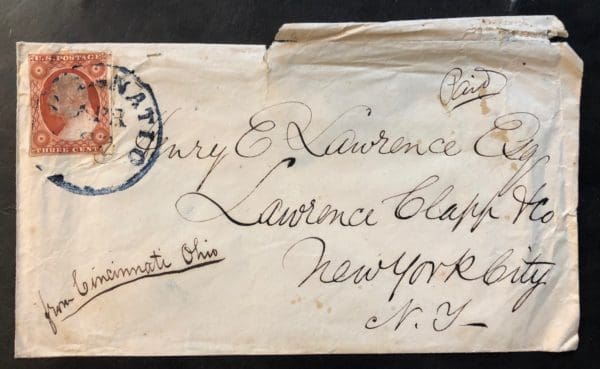 U.S. POSTAGE
THREE CENTS
Paid
Henry E Lawrence Esq
Lawrence Clapp & Co
New York City
N. Y.
from Cincinnati Ohio